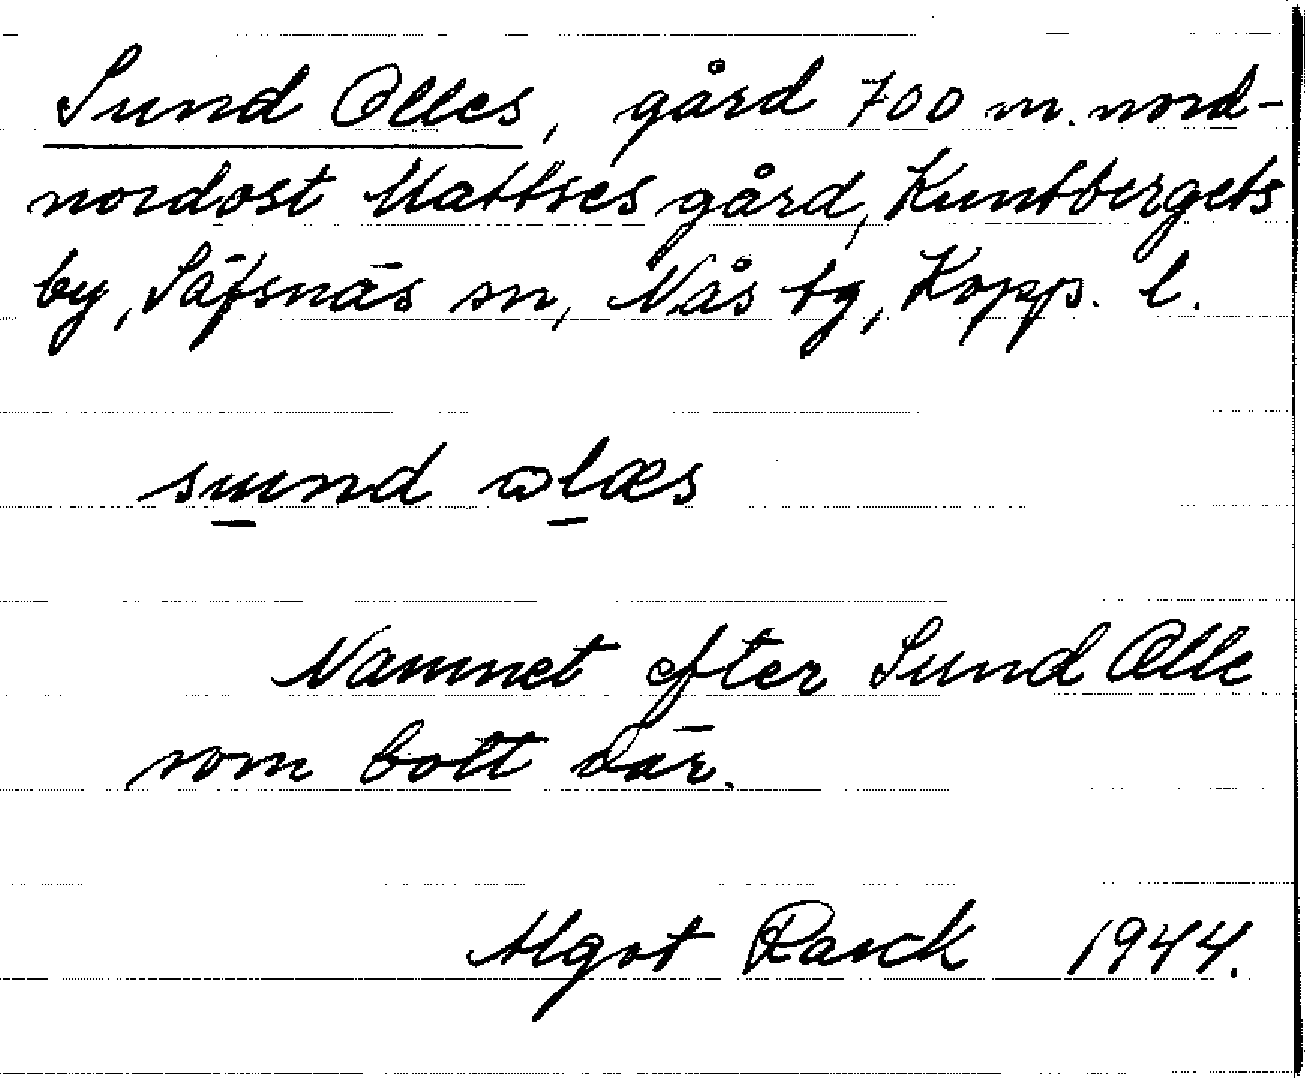 Sund Olles, gård 700 m. nord-
nordost Mattses gård, Kuntbergets
by, Säfsnäs sn, Nås tg, Kopp. l.
sɯnd ωlæs
Namnet efter Sund Olle
som bott där.
Algot Rasck 1944.